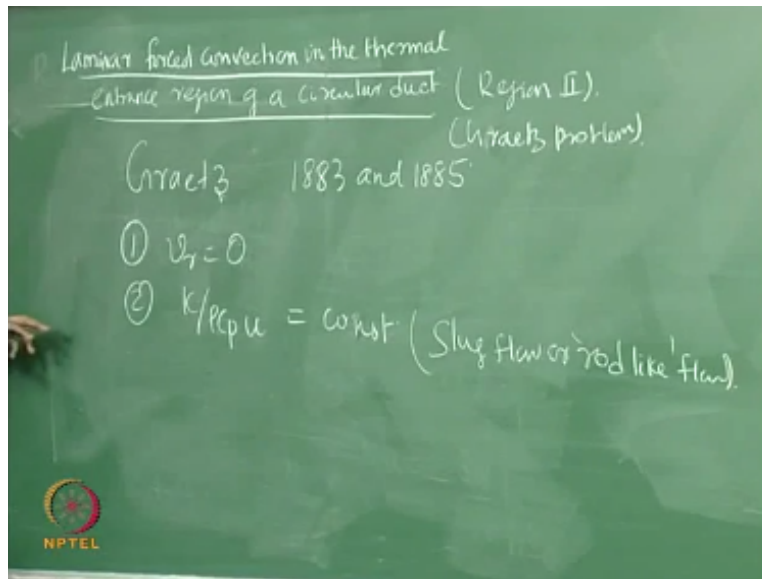 Laminar forced convection in the thermal
entrance region of a circular duct (Region II).
(Graetz problem).
Graetz 1883 and 1885
① vr = 0
② K/ρCp u = const (Slug flow or 'rod like' flow).
NPTEL